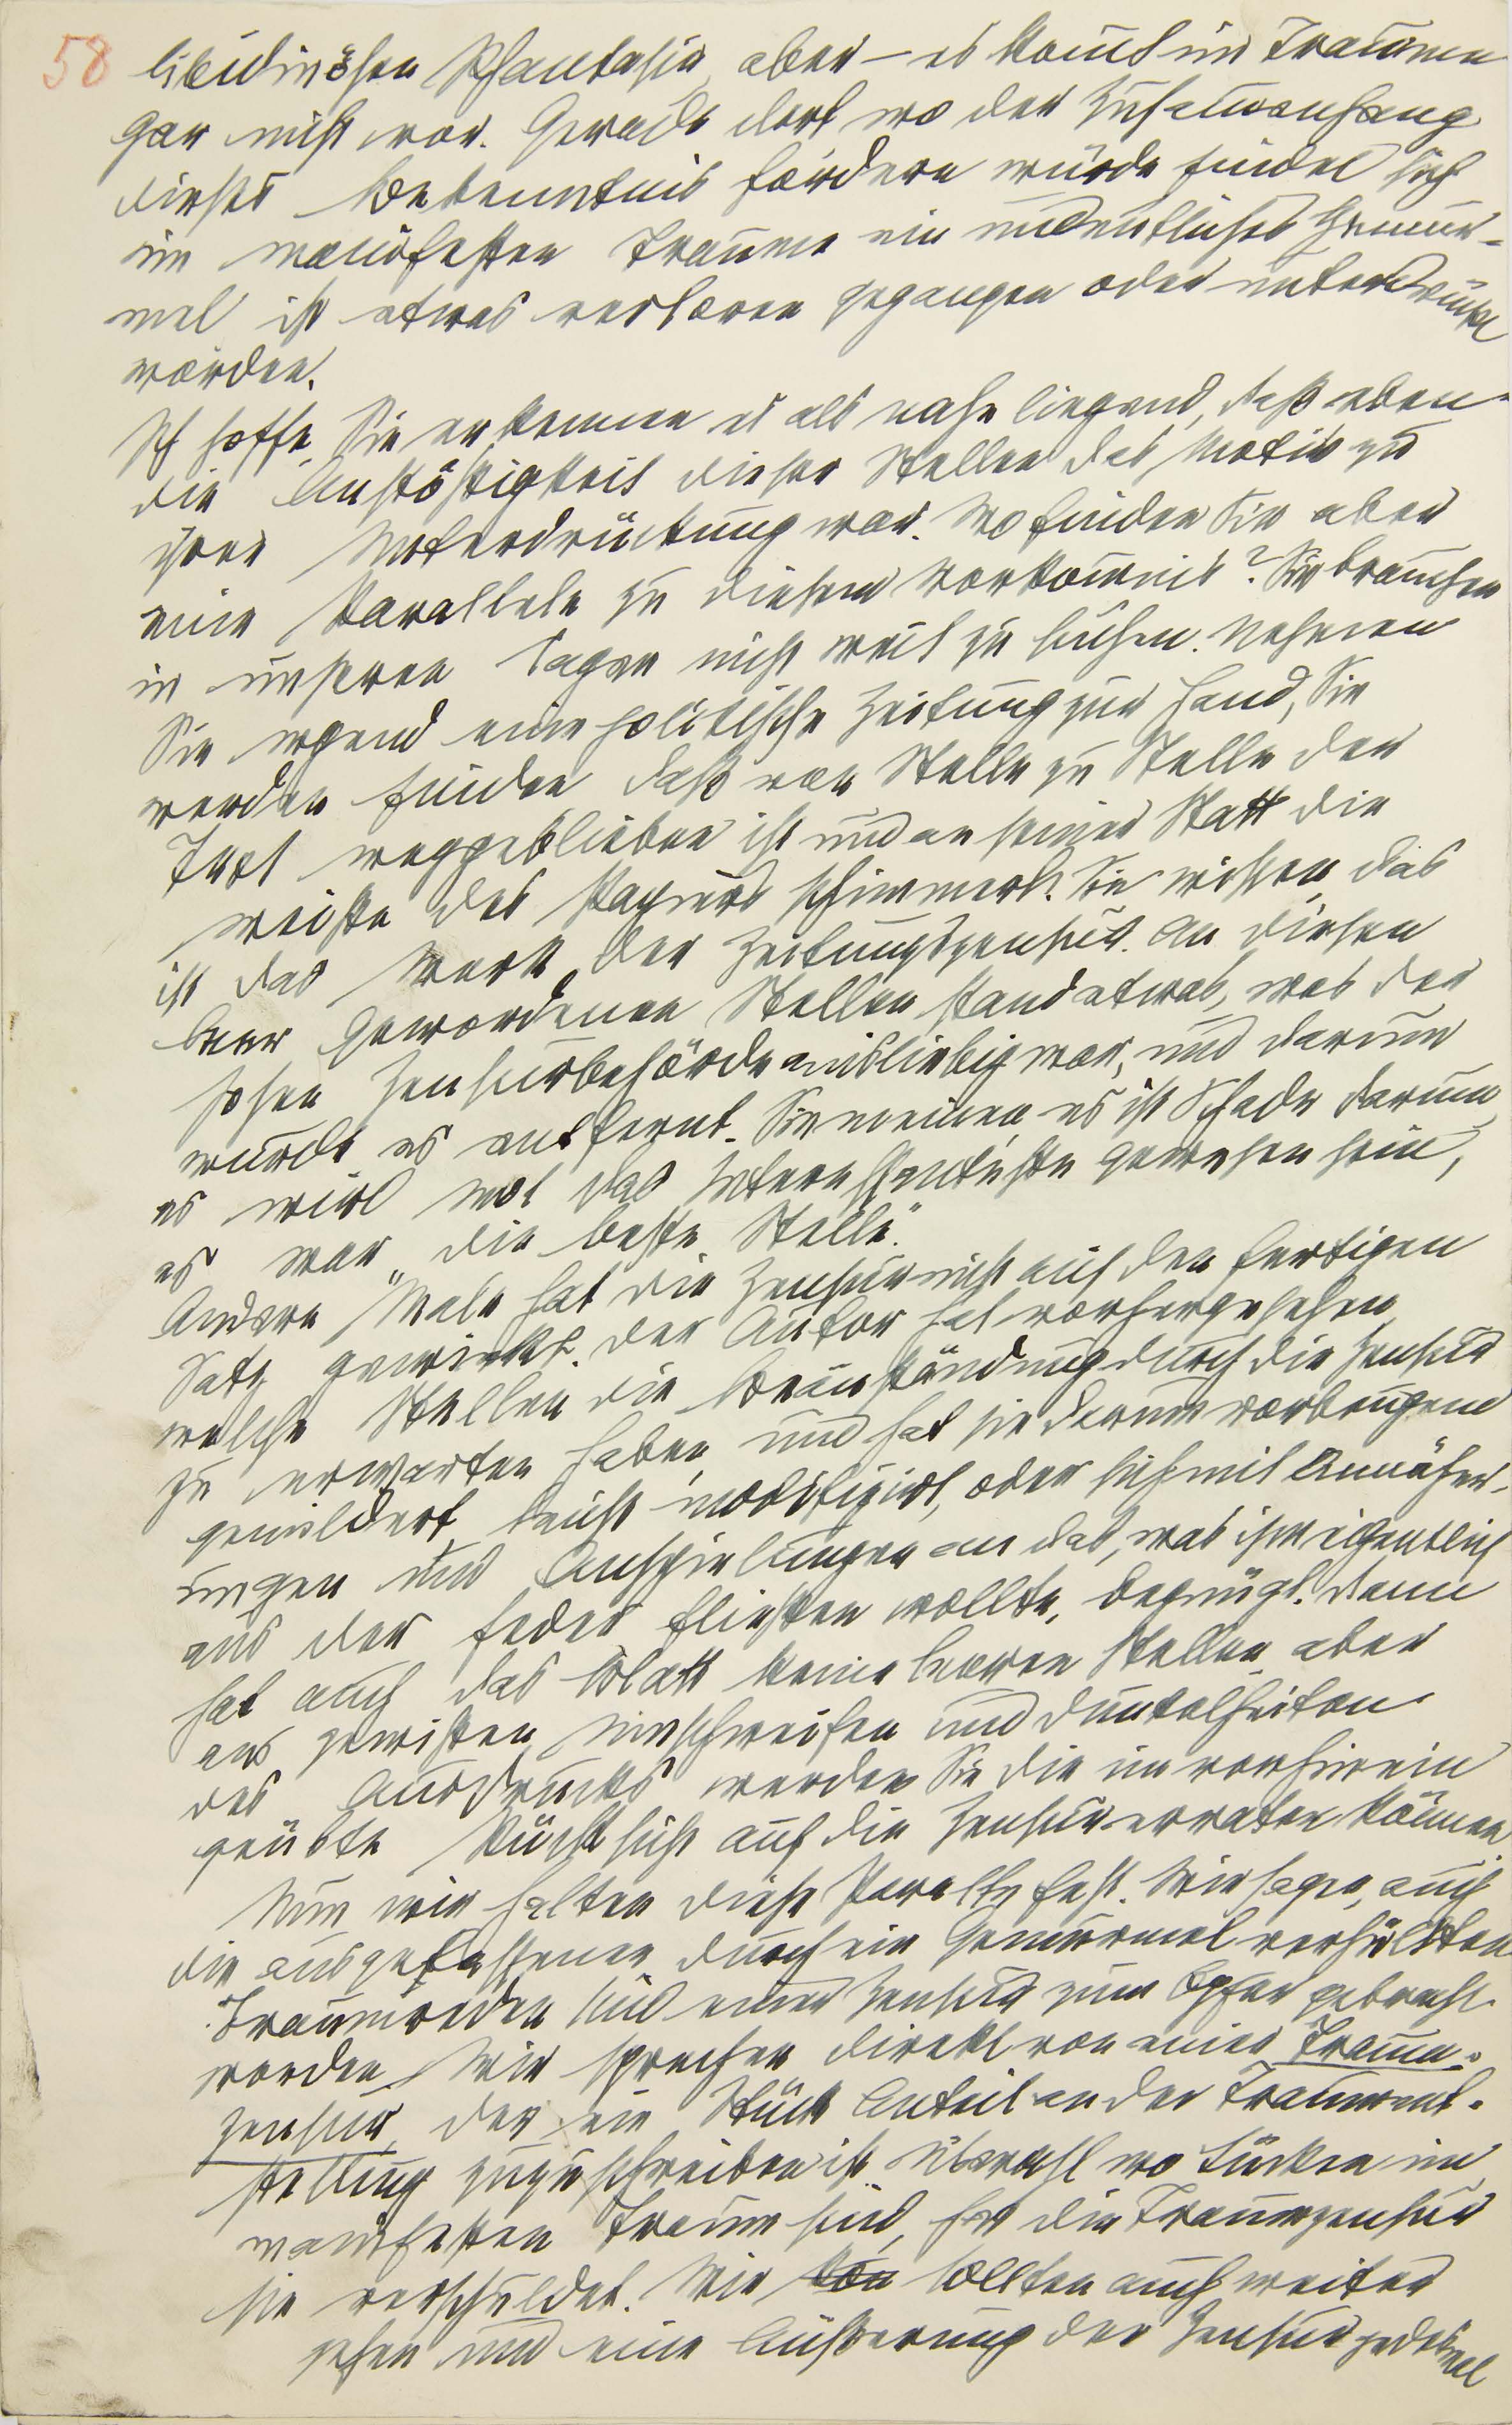 58
libidinösen Phantasie, aber – es kom̄t im Traume
gar nicht vor. Gerade dort wo der Zusam̄enhang
dieses Bekenntnis fordern würde findet sich
im manifesten Traume ein undeutliches Gemur-
mel ist etwas verloren gegangen oder unterdrückt
worden.
Ich hoffe, Sie erkennen es als nahe liegend, daß eben
die Anstößigkeit dieser Stellen das Motiv zu
ihrer Unterdrückung war. Wo finden Sie aber
eine Parallele zu diesem Vorkom̄nis? Sie brauchen
in unseren Tagen nicht weit zu suchen. Nehmen
Sie irgend eine politische Zeitung zur Hand, Sie
werden finden daß von Stelle zu Stelle der
Text weggeblieben ist und an seiner Statt die
weiße des Papiers schimmert. Sie wissen, das
ist das Werk der Zeitungszensur. An diesen
leer gewordenen Stellen stand etwas, was der
hohen Zensurbehörde mißliebig war, und darum
wurde es entfernt. Sie meinen, es ist Schade darum,
es wird wol das Interessanteste gewesen sein,
es war „die beste Stelle".
Andere Male hat die Zensur nicht auf den fertigen
Satz gewirkt. Der Autor hat vorhergesehen,
welche Stellen die Beanständung durch die Zensur
zu erwarten haben, und hat sie darum vorbeugend
gemildert, leicht modifizirt, oder sich mit Annäher-
ungen und Anspielungen an das, was ihm eigentlich
aus der Feder fließen wollte, begnügt. Dann
hat auch das Blatt keine leeren Stellen, aber
aus gewissen Umschweifen und Dunkelheiten
des Ausdrucks werden Sie die im vorhinein
geübte Rücksicht auf die Zensur erraten können.
Nun wir halten diese Parallele fest. Wir sagen, auch
die ausgelassenen, durch ein Gemurmel verhüllten
Traumreden sind einer Zensur zum Opfer gebracht
worden. Wir sprechen direkt von einer Traum-
zensur, der ein Stück Anteil an der Traument-
stellung zuzuschreiben ist. Überall wo Lücken im
manifesten Traum sind, hat die Traumzensur
sie verschuldet. Wir kön sollten auch weiter
gehen und eine Äußerung der Zensur jedesmal